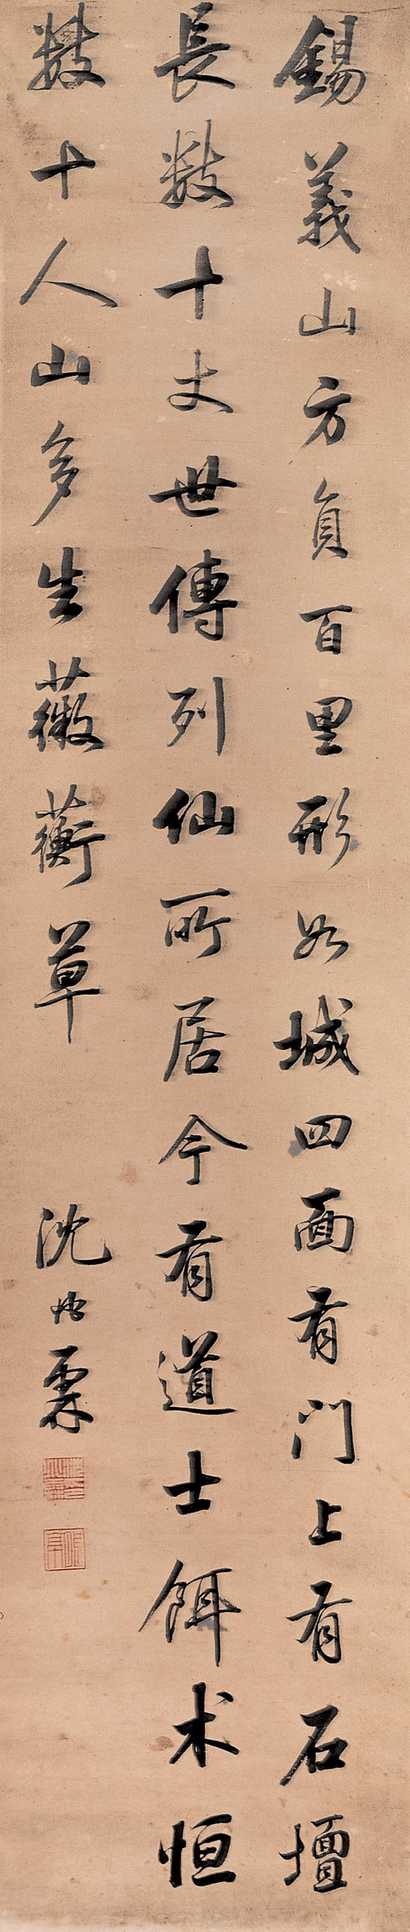 錫義山方員百里形如城四面有門上有石壇
長數十丈世傳列仙所居今有道士餌术恒
數十人山多生薇蘅草
沈荃霖